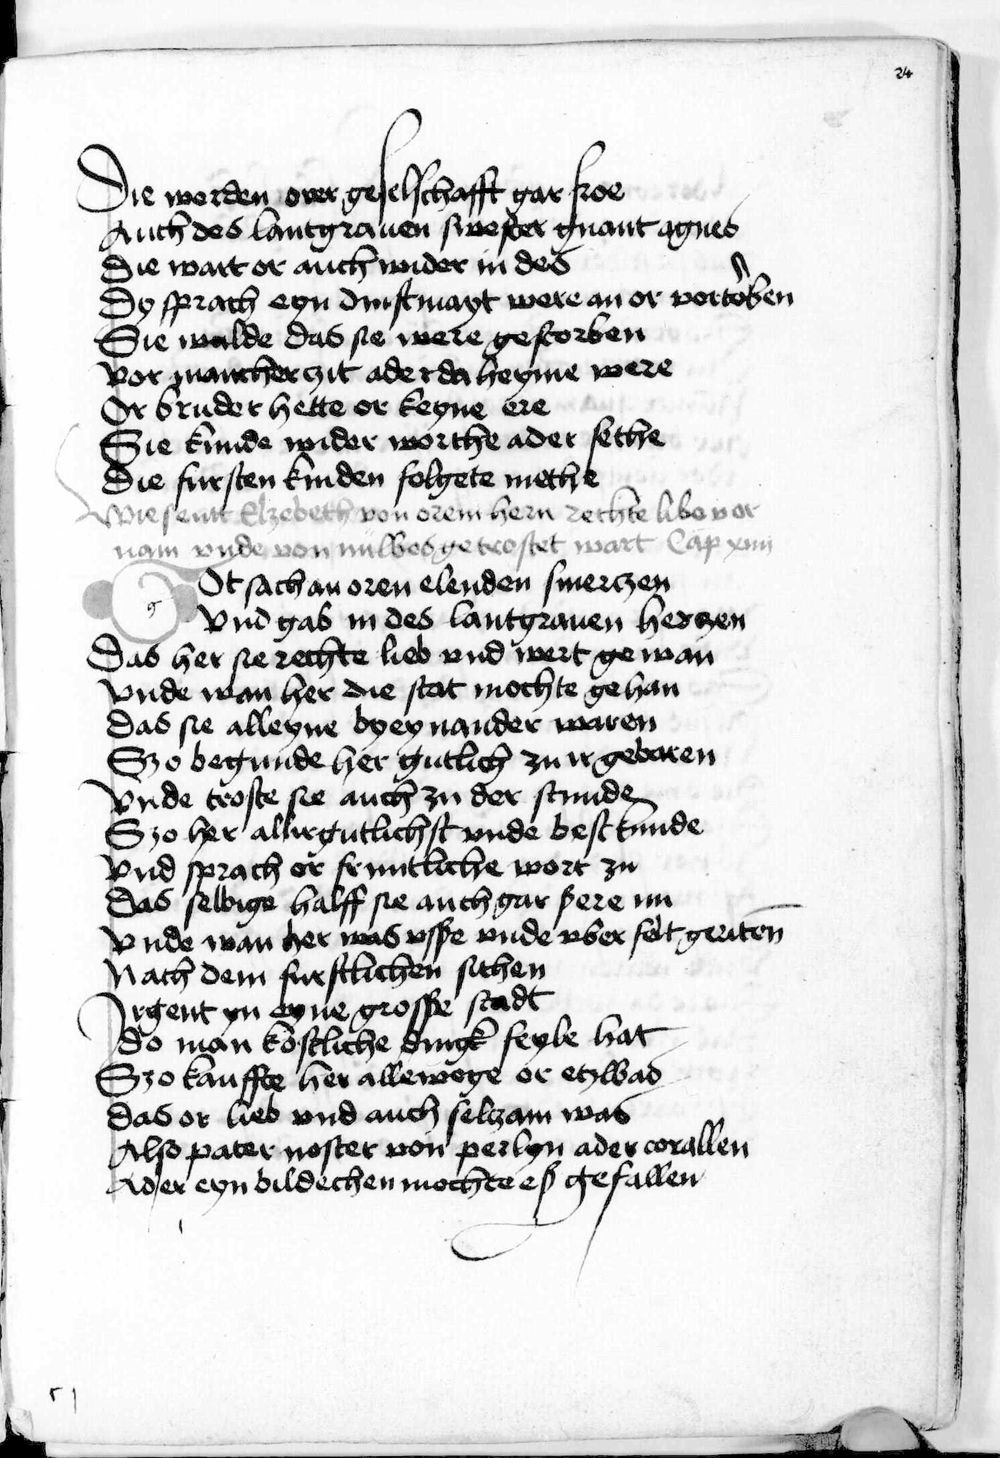 24
Die worden orer geselschafft gar froe
Auch des lantgrauen swester gnant agnes
Die wart or auch wider in des
Dy sprach eyn dinstmayt were an or vortorben
Sie wulde das sie were gestorben
vor mancher zit ader da heyme were
Or bruder hette or keyne ere
Sie kunde wider worthe ader sethe
Die fursten kinden folgete methe
Wie sent Elzebeth von orem hern rechte libe vor
nam vnde von milbes getrostet wart Cap xiiii
g Ot sach an oren elenden smerczen
Vnd gab in des lantgrauen herczen
Das her sie rechte lieb vnd wert gewan
Vnde wan her die stat mochte gehan
Das sie alleyne byeynander waren
Szo begunde her gutlich zu ir gebaren
Vnde troste sie auch zu der stunde
Szo her allirgutlichst vnde best kunde
Vnd sprach or fruntliche wort zu
Das selbige halff sie auch gar sere nu
Vnde wan her was vsse vnde vber felt geriten
Nach dem furstlichen sithen
Irgent yn eyne grosse stadt
Do man kostliche dingk feyle hat
Szo kauffte her allewege or etzwas
Das or lieb vnd auch selzam was
Also pater noster von perlyn ader corallen
Ader eyn bildechen mochte eß gefallen